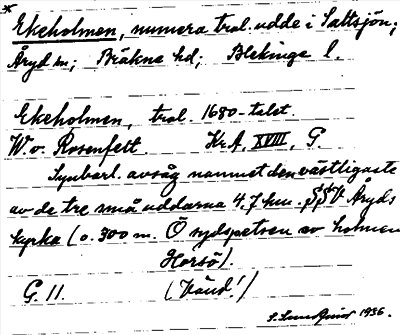 Ekeholmen, numera trol. udde i Saltsjön;
Åryd sn; Bräkne hd; Blekinge l.
Ekeholmen, trol. 1680-talet.
W. v. Rosenfelt. Kr.A. XVIII, G.
Synbarl. avsåg namnet den västligaste
av de tre små uddarna 4,7 km. SSV Åryds
kyrka (o. 300 m. Ö sydspetsen av holmen
Horsö).
G. 11. (Vänd!)
1936.